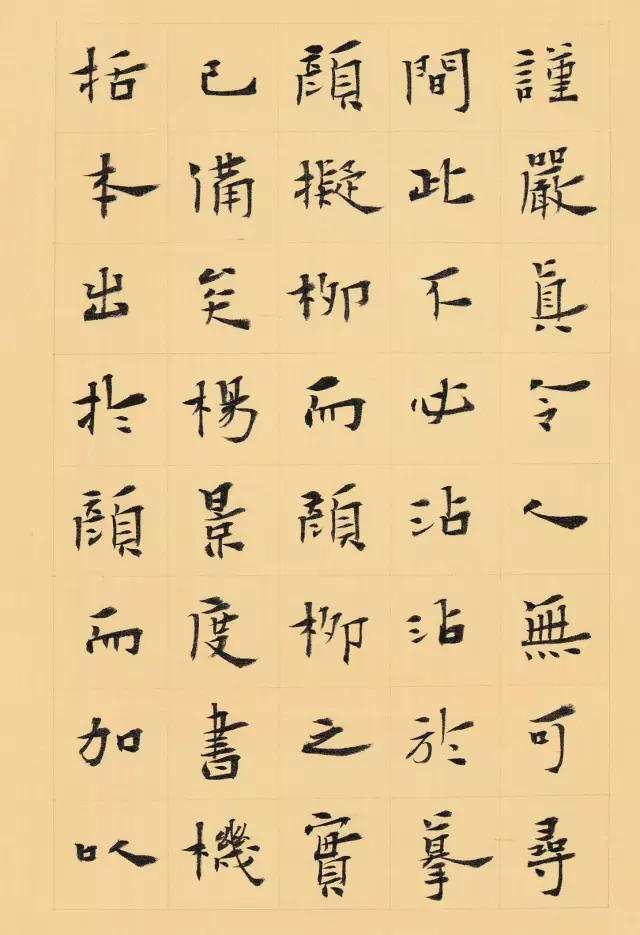 謹嚴真令人無可尋
間此不必沾沾於摹
顏擬柳而顏柳之實
已備矣楊景度書機
括本出於顏而加以